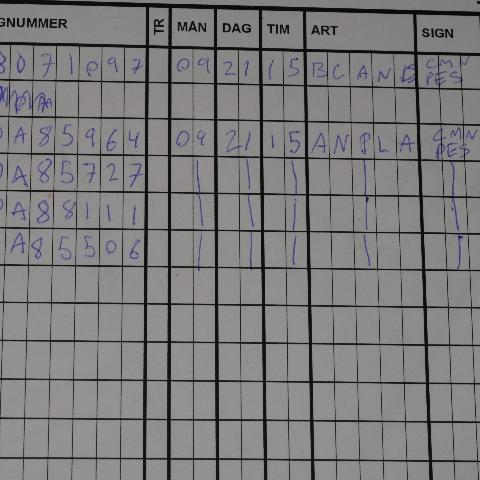 GNUMMER TR MÅN DAG TIM ART SIGN
8071097 09 21 15 BCAND CMN
PES
A85964 09 21 15 ANPLA CMN
PES
A85727 | | | | |
A88111 | | | | |
A85506 | | | | |